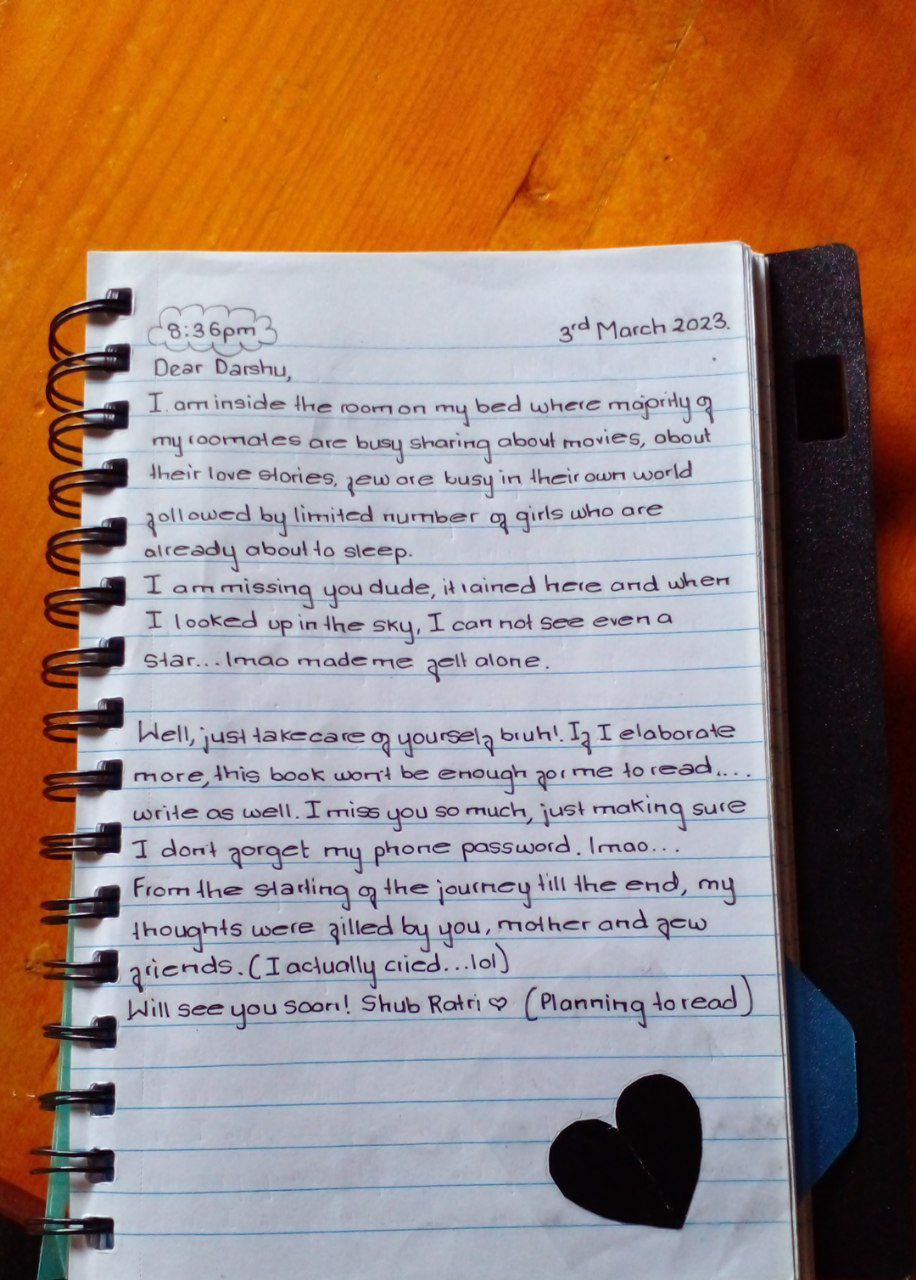 8:36pm
3rd March 2023.
Dear Darshu,
I am inside the room on my bed where majority of
my roomates are busy sharing about movies, about
their love stories, few are busy in their own world
followed by limited number of girls who are
already about to sleep.
I am missing you dude, it rained here and when
I looked up in the sky, I can not see even a
star... lmao made me fell alone.
Well, just take care of yourself bruh!. If I elaborate
more, this book won't be enough for me to read....
write as well. I miss you so much, just making sure
I don't forget my phone password. lmao...
From the starting of the journey till the end, my
thoughts were filled by you, mother and few
friends. (I actually cried...lol)
Will see you soon! Shub Ratri ♡ (Planning to read)